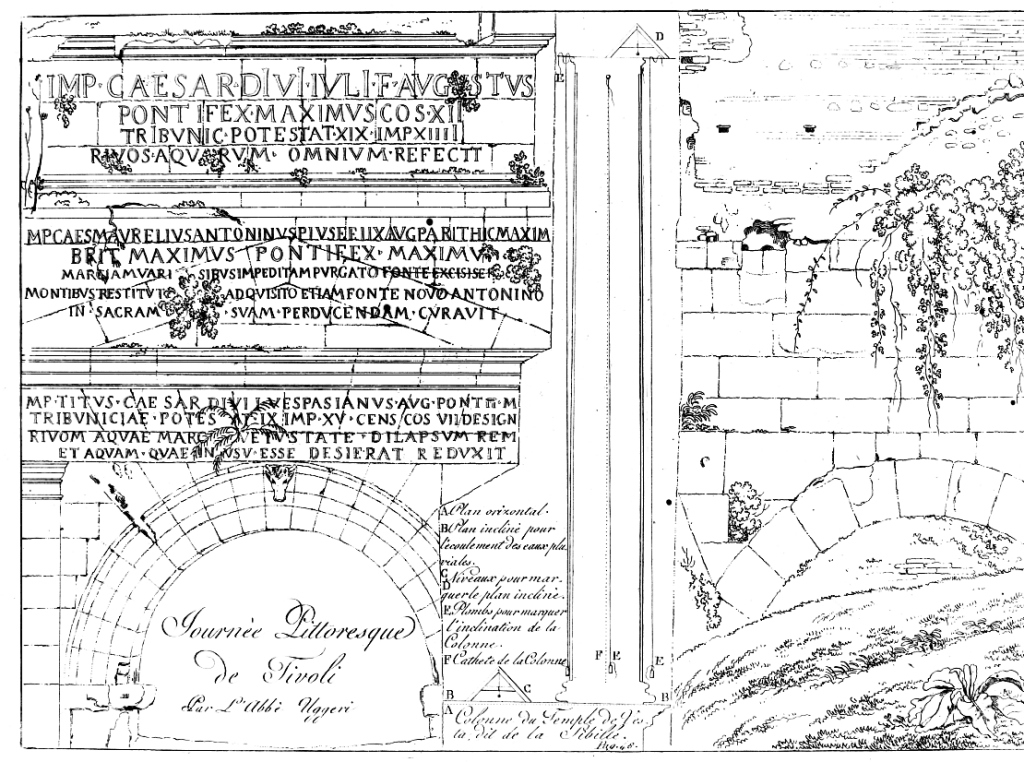 IMP · CAESAR · DIVI · IVLI · F · AVGVSTVS
PONTIFEX · MAXIMVS COS · XII
TRIBVNIC · POTESTAT · XIX · IMP XIIII
RIVOS · AQVARVM · OMNIVM · REFECIT
MP CAES M AVRELIVS ANTONINVS PIVS FELIX AVG PARTHIC MAXIM
BRIT MAXIMVS PONTIFEX · MAXIMVS
MARCIAM VARI SIBVS IMPEDITAM PVRGATO FONTE EXCISIS E
MONTIBVS RESTITVTO ADQVISITO ETIAM FONTE NOVO ANTONINO
IN · SACRAM · SVAM · PERDVCENDAM · CVRAVIT
MP · TITVS · CAESAR DIVI VESPASIANVS · AVG · PONTIF · M
TRIBVNICIAE · POTES IX IMP · XV · CENS COS VII DESIGN
RIVOM AQVAE MARC VETVSTATE · DILAPSVM REM
ET AQVAM · QVAE IN VSV · ESSE DESIERAT REDVXIT
Journèe Pittoresque
de Tivoli
Par L' Abbê Uggeri
A Plan orizontal.
B Plan incliné pour
l'ecoulement des eaux plu
viales.
C
D Niveaux pour mar-
quer le plan incliné.
E Plombs pour marquer
l'inclination de la
Colonne.
F Cathete de la Colonne
D
E
F E E
B C B
A
Colonne du Temple de Ves
ta dit de la Sibille.